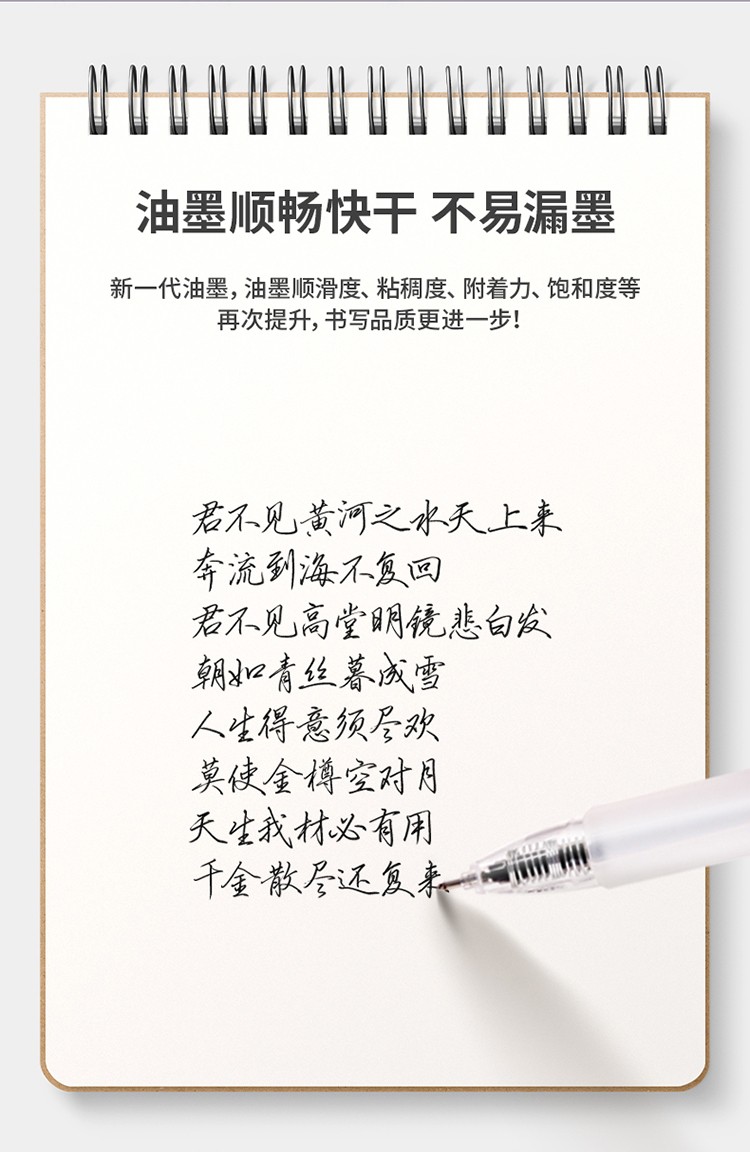 油墨顺畅快干 不易漏墨
新一代油墨，油墨顺滑度、粘稠度、附着力、饱和度等
再次提升，书写品质更进一步！
君不见黄河之水天上来
奔流到海不复回
君不见高堂明镜悲白发
朝如青丝暮成雪
人生得意须尽欢
莫使金樽空对月
天生我材必有用
千金散尽还复来